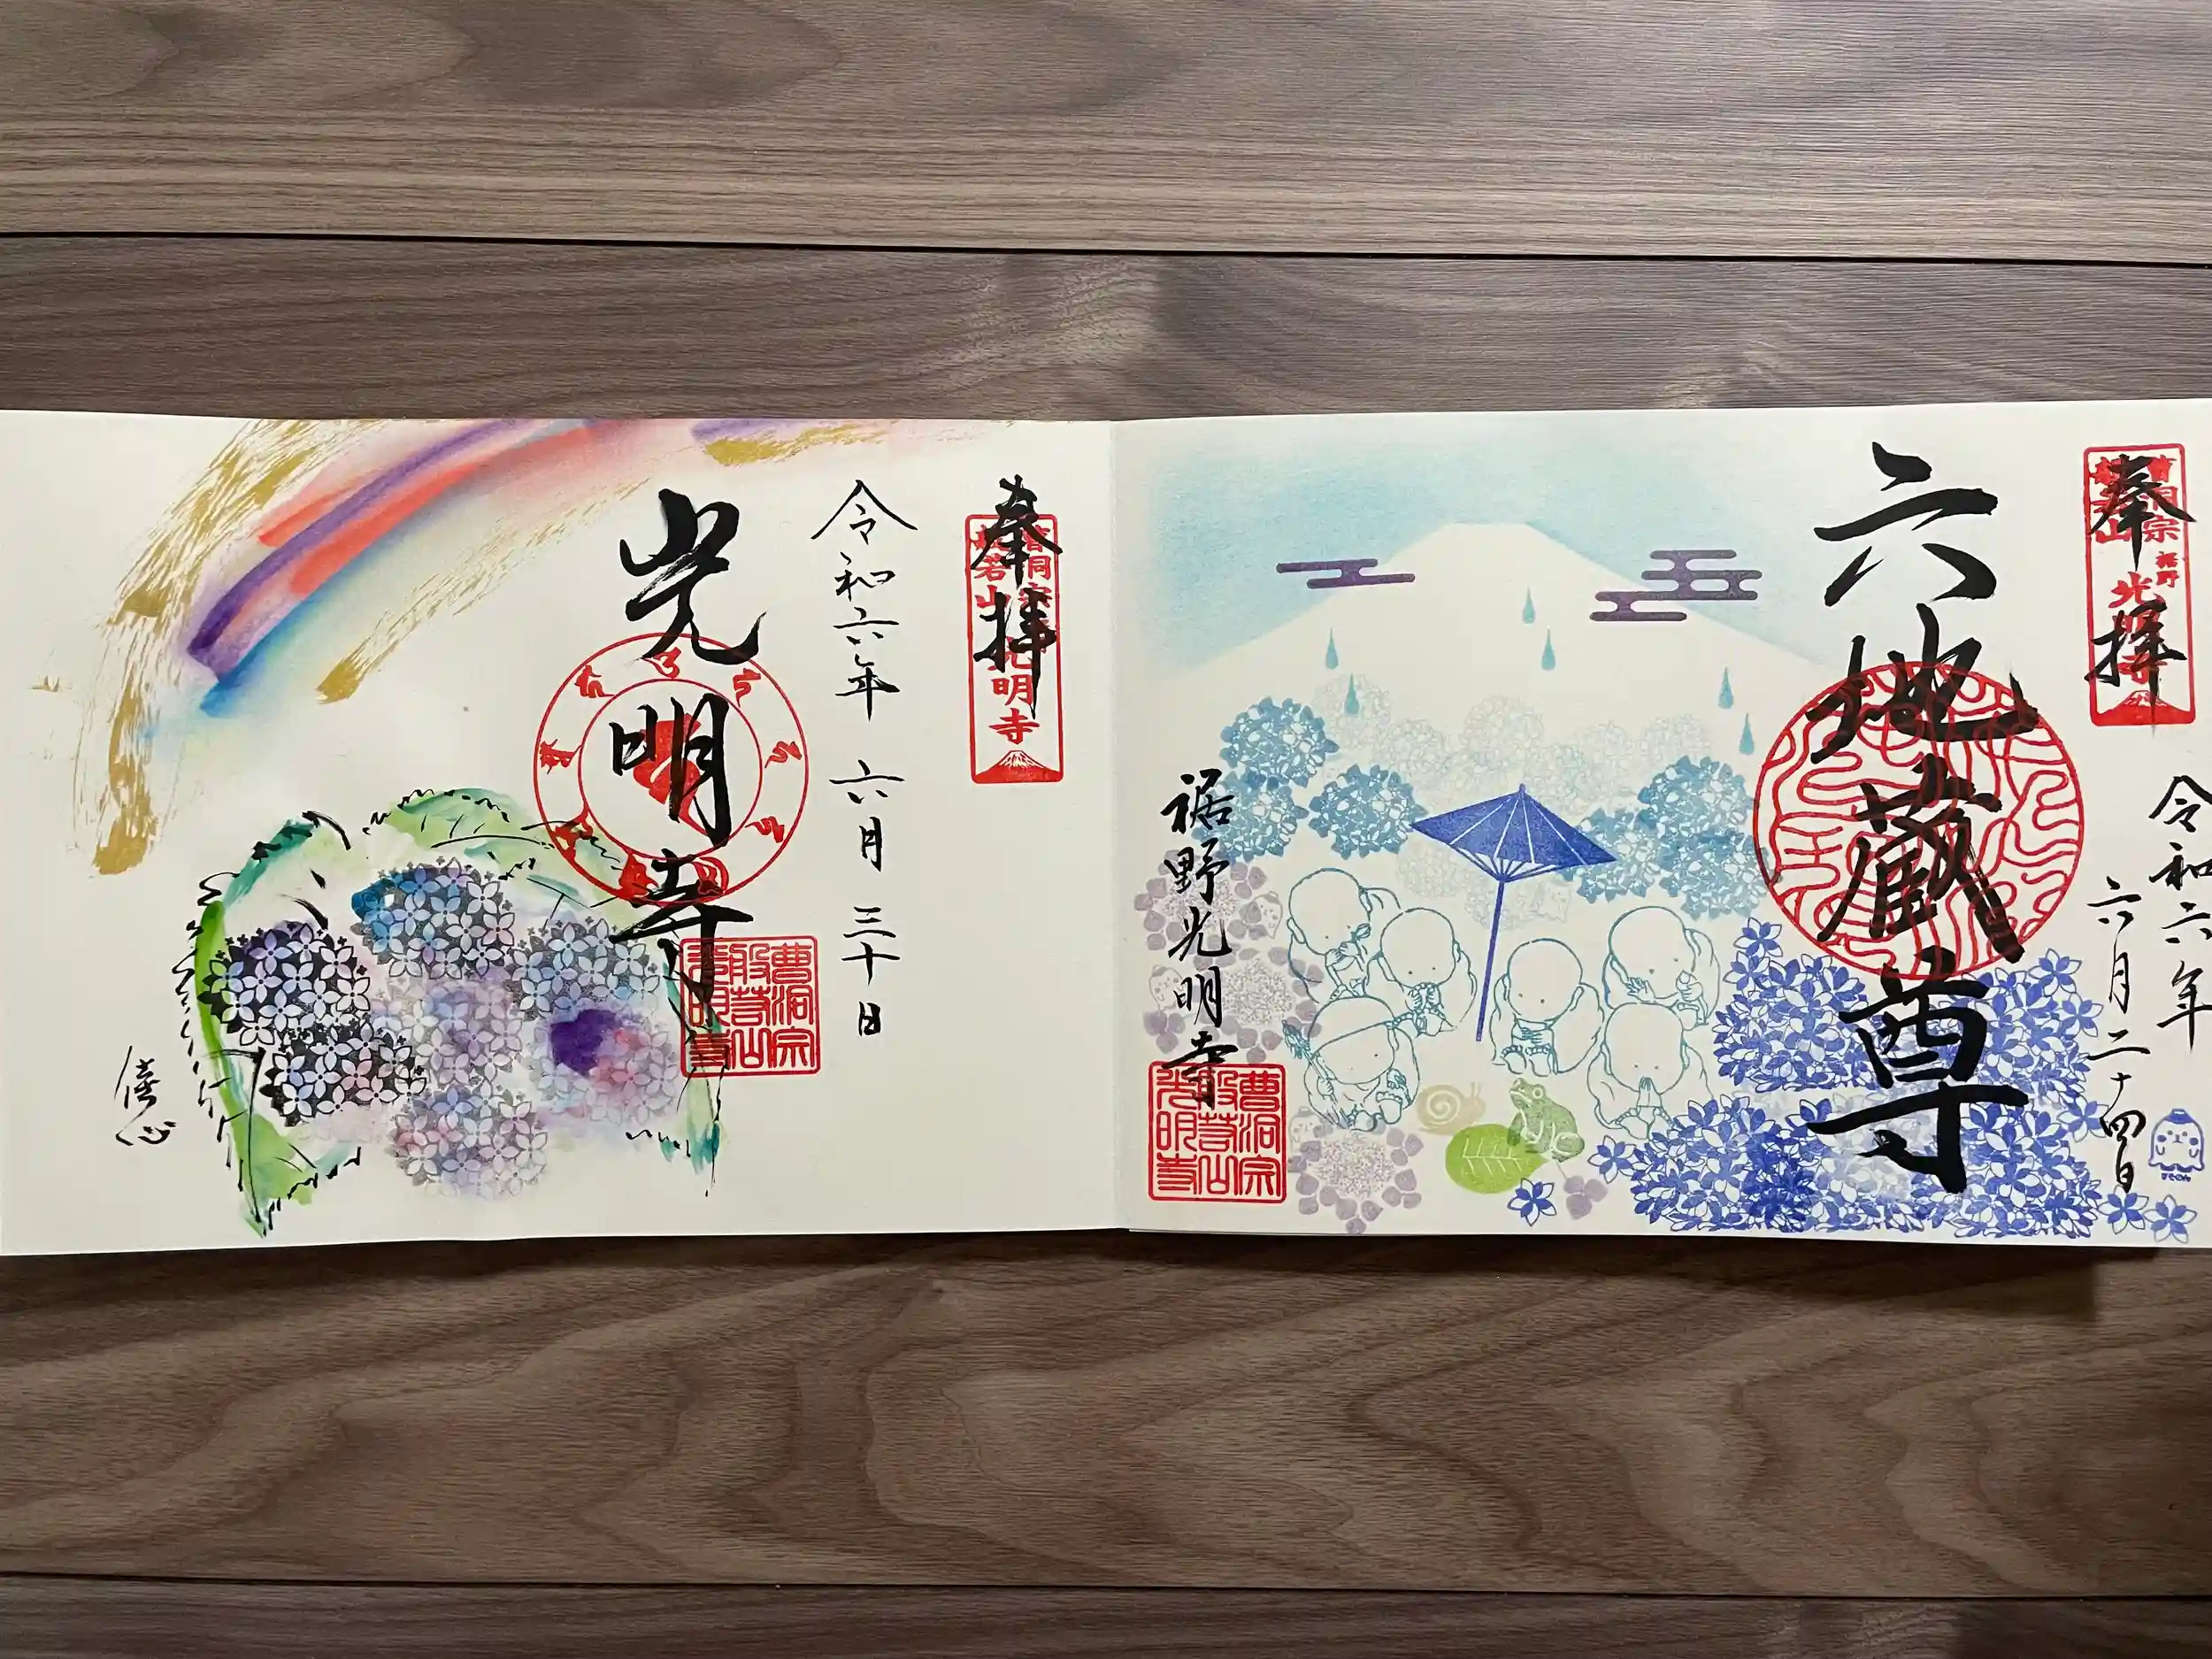 奉拝
曹洞宗
裾野
光明寺
令和六年
六月二十四日
六地蔵尊
裾野光明寺
曹洞宗
般若山
光明寺
奉拝
曹洞宗
般若山
光明寺
令和六年 六月 三十日
光明寺
曹洞宗
般若山
光明寺